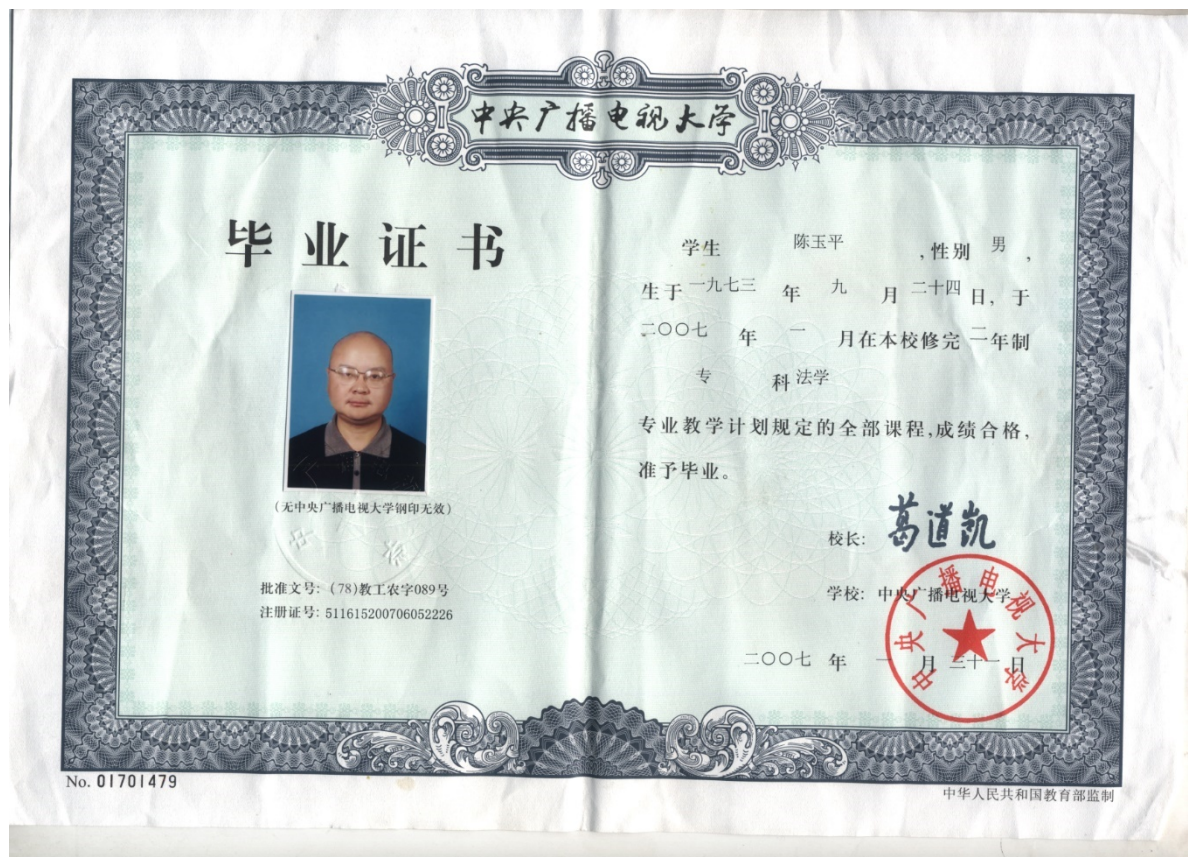 中央广播电视大学
毕业证书
(无中央广播电视大学钢印无效)
批准文号: (78)教工农字089号
注册证号: 511615200706052226
学生 陈玉平 ,性别 男 ,
生于 一九七三 年 九 月 二十四 日, 于
二〇〇七 年 一 月在本校修完 二年制
专 科 法学
专业教学计划规定的全部课程,成绩合格,
准予毕业。
校长: 葛道凯
学校: 中央广播电视大学
二〇〇七 年 一 月 三十一 日
中央广播电视大学
No. 01701479
中华人民共和国教育部监制